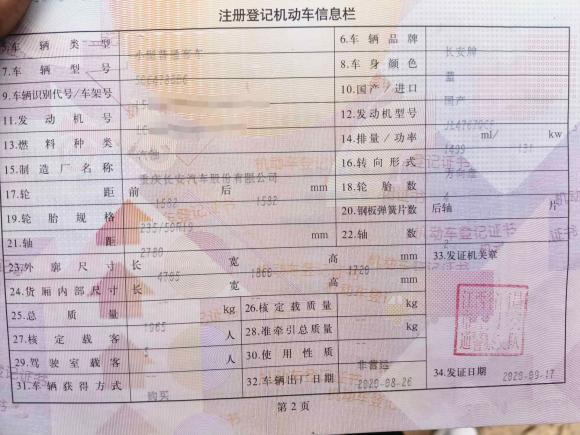 注册登记机动车信息栏
5.车辆类型 小型普通客车 6.车辆品牌 长安牌
7.车辆型号 8.车身颜色 蓝
9.车辆识别代号/车架号 10.国产/进口 国产
11.发动机号 12.发动机型号
13.燃料种类 14.排量/功率 1499 ml/ 131 kw
15.制造厂名称 重庆长安汽车股份有限公司 16.转向形式 方向盘
17.轮距 前 1582 后 1592 mm 18.轮胎数 4
19.轮胎规格 235/50R19 20.钢板弹簧片数 后轴 片
21.轴距 2780 mm 22.轴数 2
23.外廓尺寸 长 4705 宽 1860 高 1720 mm 33.发证机关章
24.货厢内部尺寸 长 宽 高 mm
25.总质量 1965 kg 26.核定载质量 kg
27.核定载客 5 人 28.准牵引总质量 kg
29.驾驶室载客 人 30.使用性质 非营运
31.车辆获得方式 购买 32.车辆出厂日期 2020-08-26 34.发证日期 2020-09-17
第2页